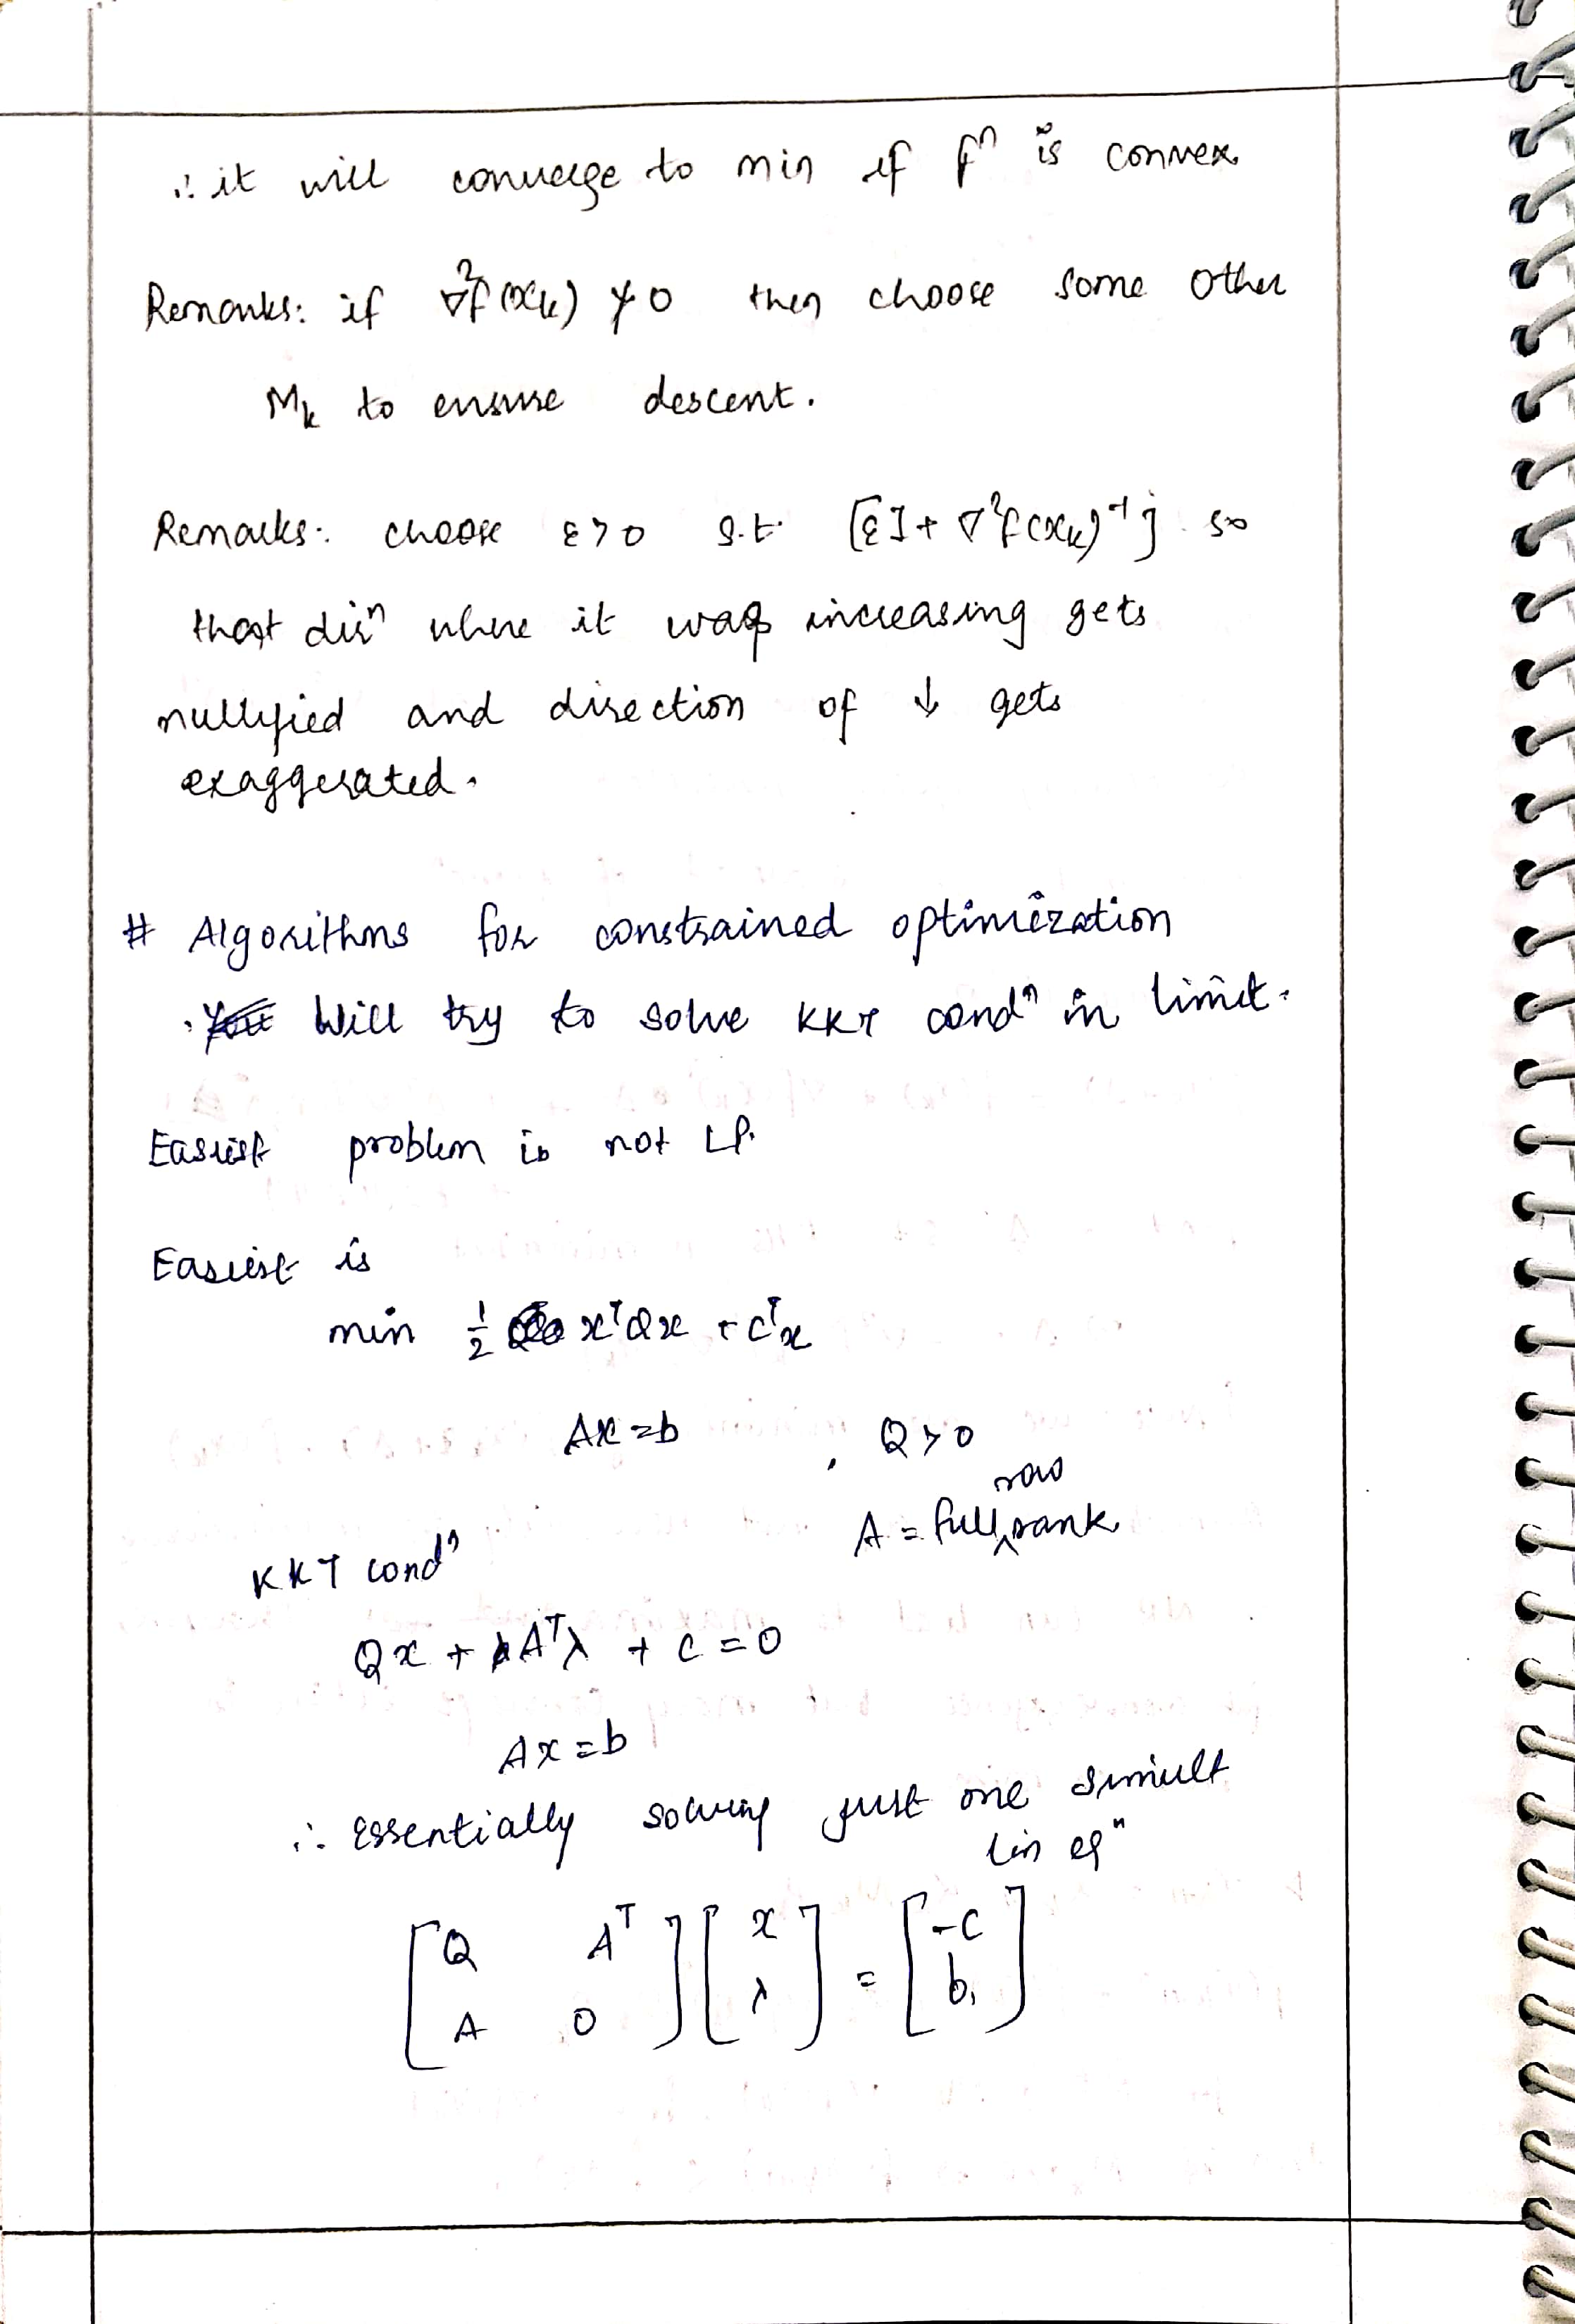 ∴ it will converge to min if fⁿ is convex
Remarks: if ∇²f(xₖ) ⊁ 0 then choose some other
Mₖ to ensure descent.
Remarks: choose ε>0 s.t. [εI + ∇²f(xₖ)⁻¹] so
that dirⁿ where it was increasing gets
nullified and direction of ↓ gets
exaggerated.
# Algorithms for constrained optimization
. Will try to solve KKT condⁿ in limit.
Easiest problem is not LP.
Easiest is
min ½ xᵀQx + cᵀx
Ax=b , Q≻0
A = full row rank
KKT condⁿ
Qx + Aᵀλ + c = 0
Ax=b
∴ Essentially solving just one simult
lin eqⁿ
[Q Aᵀ] [x] = [-c]
[A 0] [λ] [b]